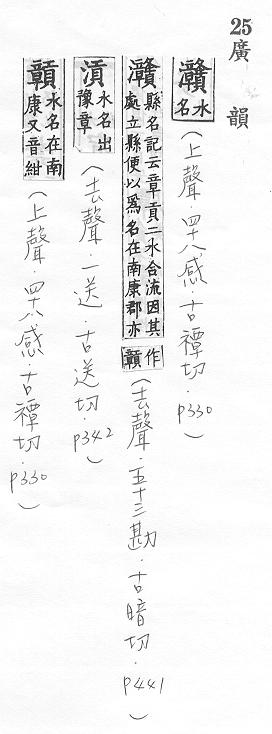 25
廣韻
灨水名(上聲．四十八感．古禫切．p330)
灨縣名記云章貢二水合流因其處立縣便以爲名在南康郡亦作贑(去聲．五十三勘．古暗切．p441)
湏水名出豫章(去聲．一送．古送切．p342)
贑水名在南康又音紺(上聲．四十八感．古禫切．p330)